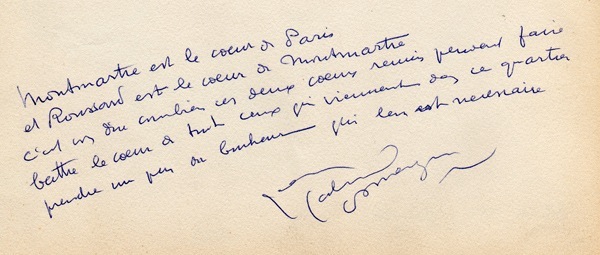 Montmartre est le coeur de Paris
et Roussard est le coeur de Montmartre
c'est vous dire combien ces deux coeurs réunis peuvent faire
battre le coeur de tout ceux qui viennent dans ce quartier
prendre un peu du bonheur qui leur est nécessaire